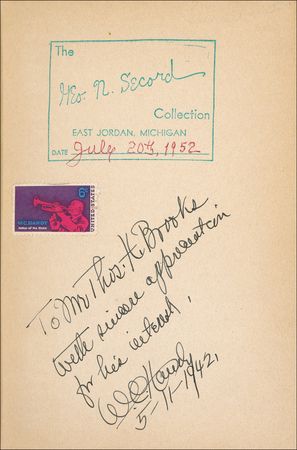 The
Geo. N. Secord
Collection
EAST JORDAN, MICHIGAN
DATE July 20th, 1952
6¢
UNITED STATES
W.C. HANDY
Father of the Blues
To Mr Thos. K. Brooks
with sincere appreciation
for his interest,
W.C. Handy
5-11-1942,